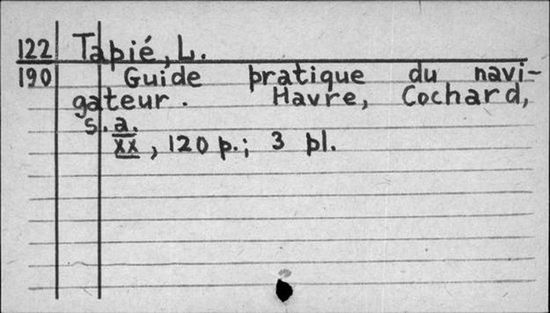 122 Tapié, L.
190 Guide pratique du navi-
gateur. Havre, Cochard,
s.a.
xx, 120 p.; 3 pl.